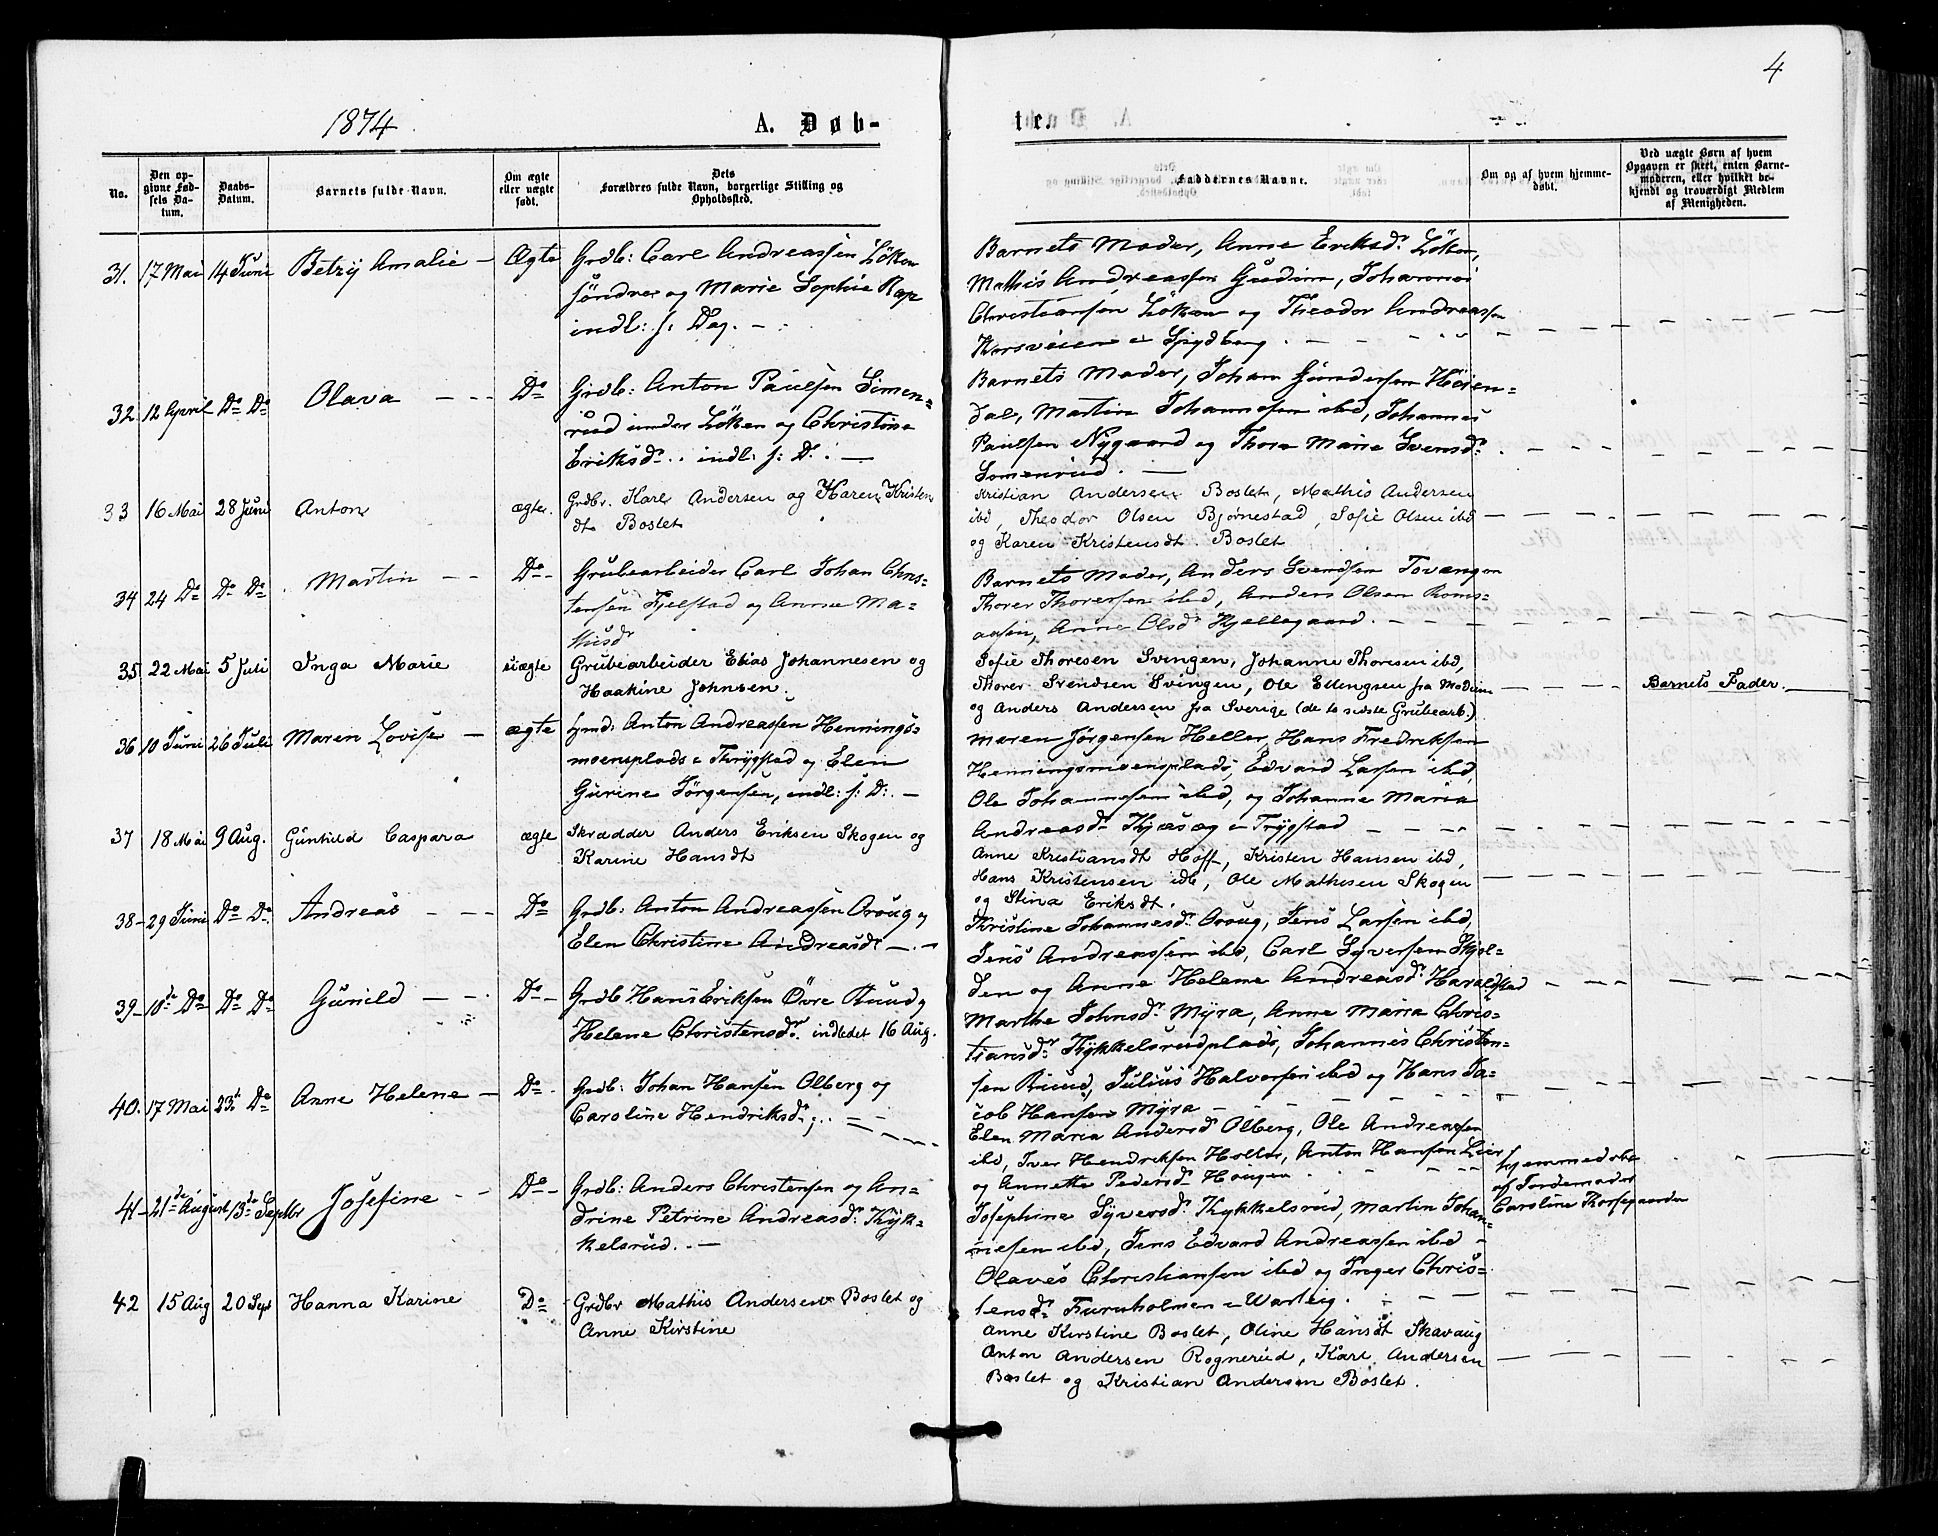 4
1874.
A. Døb-
ter.
No.
Den op-
givne Fød-
sels Da-
tum.
Daabs-
Datum.
Barnets fulde Navn.
Om ægte
eller uægte
født.
Dets
Forældres fulde Navn, borgerlige Stilling og
Opholdssted.
Faddernes Navne.
Om og af hvem hjemme-
døbt.
Ved uægte Børn af hvem
Opgaven er skeet, enten Barne-
moderen, eller hvilket be-
kjendt og troværdigt Medlem
af Menigheden.
31. 17 Mai 14 Juni Betzy Amalie — Ægte
Grdb: Carl Andreassen Löken
söndre og Marie Sophie Rap
indl: s: Dag. —
Barnets Moder, Anne Eriksdr Löken,
Mathis Andreassen Gudim, Johannes
Christiansen Löken og Theodor Andreassen
Korsveien i Spydberg.
32. 12 April Do Do Olava — Do
Grdb: Anton Paulsen Simen-
rud under Löken og Christine
Eriksdr. indl: s: D. —
Barnets Moder, Johan Gundersen Höien-
dal, Martin Johannesen ibd, Johannes
Paulsen Nygaard og Thora Marie Svensdr
Simenrud. —
33 16 Mai 28 Juni Anton ægte.
Grdbr. Karl Andersen og Karen Kristen
dt Boslet
Kristian Andersen Boslet, Mathis Andersen
ibd, Theodor Olsen Bjørnestad, Sofie Olsen ibd
og Karen Kristensdt. Boslet
34 24 Do Do Do Martin — Do
Grubearbeider Carl Johan Chris-
tensen Fjelstad og Anne Ma-
thisdr
Barnets Moder, Anders Svendsen Tovengen
Thorer Thoresen ibd, Anders Olsen Roms-
aasen, Anne Olsdr Kjellegaard.
35 22 Mai 5 Juli Inga Marie uægte
Grubearbeider Elias Johannesen og
Haakine Johnsen.
Sofie Thoresen Svingen, Johanne Thoresen ibd,
Thorer Svendsen Svingen, Ole Ellengsen fra Modum
og Anders Andersen fra Sverige (de to sidste Grubearb.)
Barnets Fader.
36 10 Juni 26 Juli Maren Lovise — ægte
Anton Andreassen Hennings-
moensplads i Thrygstad og Elen
Gurine Jörgensen, indl: s: D: —
Maren Jörgensen Heller, Hans Fredriksen
Henningsmoensplads, Edvard Larsen ibd,
Ole Johannesen ibd, og Johanne Maria
Andreasdr i Trygstad
37 18 Mai 9 Aug. Gunhild Caspara ægte
Skrædder Anders Eriksen Skogen og
Karine Hansdt
Anne Kristiansdt Hoff, Kristen Hansen ibd,
Hans Kristensen idb, Ole Mathisen Skogen
og Stina Eriksdt.
38 — 29 Juni Do Do. Andreas — Do
Grdb: Anton Andreassen Oroug og
Elen Christine Andreasdr —
Kristine Johannesdr Oroug, Jens Larsen ibd,
Jens Andreassen ibd, Carl Syversen Skjol-
den og Anne Helene Andreasdr. Haraldstad
39 — 10de Do Do Do Gunild — Do
Grdb Hans Eriksen Övre Ruud og
Helene Christensdr. indledet 16 Aug.
Marthe Johnsdr. Myra, Anne Maria Chris-
tiansdr. Kykkelsrudplads, Johannes Christen-
sen Ruud, Julius Halvorsen ibd og Hans Ja-
cob Hansen Myra
40. 17 Mai 23de Do Anne Helene — Do
Grdb: Johan Hansen Olberg og
Caroline Hendriksdr;
Elen Maria Andersdr Olberg, Ole Andreassen
ibd, Iver Hendriksen Holter, Anton Hansen Lier
og Annette Pedersdr Haugen.
41 — 21de August 13de Septbr Josefine — Do
Grdb: Anders Christensen og An-
drine Petrine Andreasdr: Kyk-
kelsrud. —
Josephine Syversdr. Kykkelsrud, Martin Johan-
nesen ibd, Jens Edvard Andreassen ibd —
Olaves Christiansen ibd og Inger Chris-
tensdr. Furuholmen i Varteig.
hjemmedøbt
af Jordemoder
Caroline Thorsegaarden
42 15 Aug 20 Sept Hanna Karine Do
Grdbr Mathis Andersen Boslet og
Anne Kirstine
Anne Kirstine Boslet, Oline Hansdt Skavaug
Anton Andersen Rognerud, Karl Andersen
Boslet og Kristian Andersen Boslet.